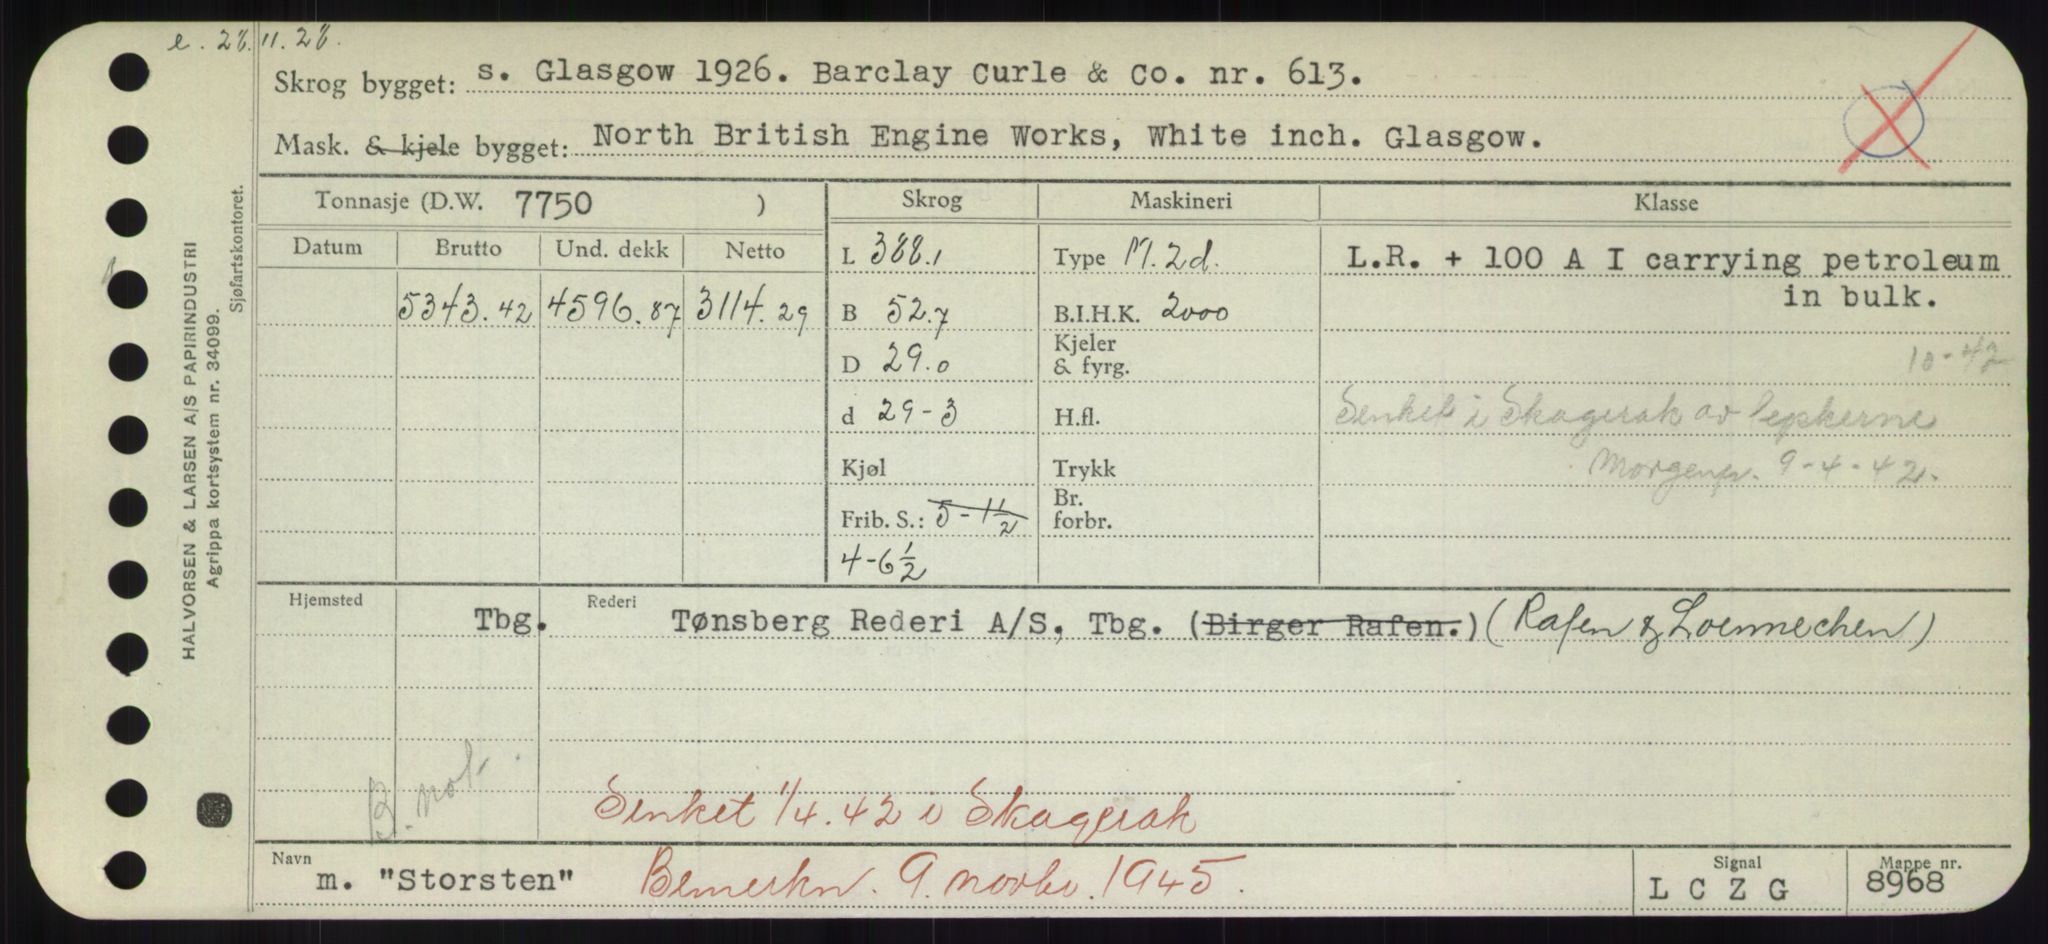 e. 28.11.28.
Skrog bygget: s. Glasgow 1926. Barclay Curle & Co. nr. 613.
Mask. & kjele bygget: North British Engine Works, White inch. Glasgow.
Tonnasje (D.W. 7750 )
Skrog
Maskineri
Klasse
Datum Brutto Und. dekk Netto
5343.42 4596.87 3114.29
L 388.1
B 52.7
D 29.0
d 29-3
Kjøl
Frib. S.: 5-11/2
4-6 1/2
Type M.2d.
B.I.H.K. 2000
Kjeler
& fyrg.
H.fl.
Trykk
Br.
forbr.
L.R. + 100 A I carrying petroleum
in bulk.
10-42
Senket i Skagerak av
9-4-42.
Hjemsted Rederi
Tbg. Tønsberg Rederi A/S, Tbg. (Birger Rafen.) (Rafen & Loennechen)
B. not.
Senket 1/4.42 i Skagerak
Navn
m. "Storsten" Bemerkn. 9. novbr. 1945.
Signal
L C Z G
Mappe nr.
8968
HALVORSEN & LARSEN A/S PAPIRINDUSTRI
Agrippa kortsystem nr. 34099.
Sjøfartskontoret.